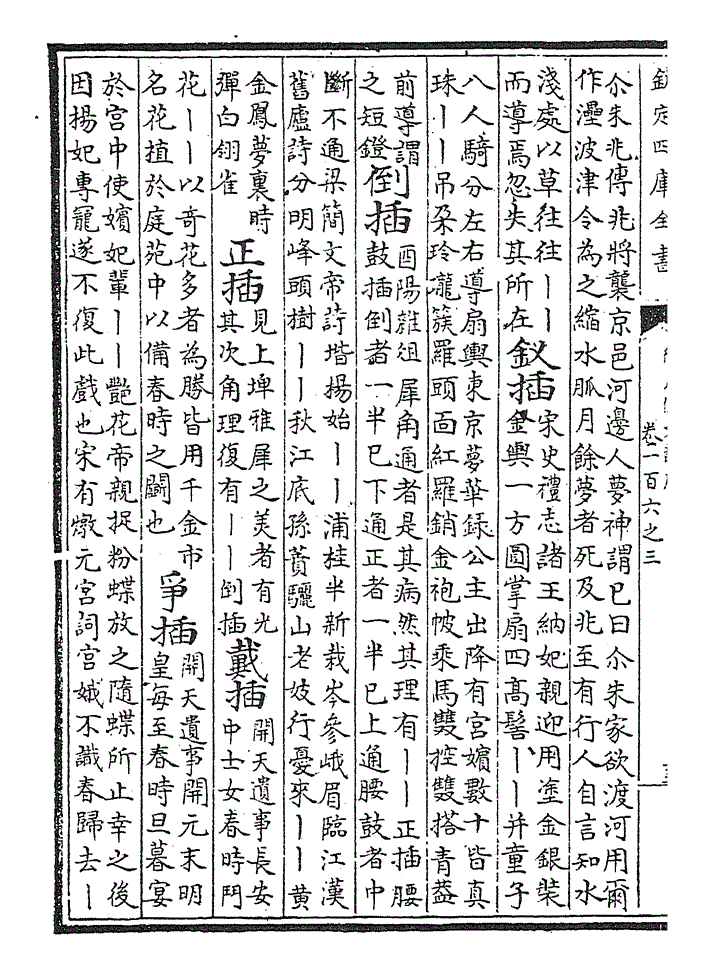 欽定四庫全書
卷一百六之三
尒朱兆傳兆將襲京邑河邊人夢神謂巳曰尒朱家欲渡河用爾
作灅波津令為之縮水脈月餘夢者死及兆至有行人自言知水
淺處以草往往丨丨
而導焉忽失其所在
釵插
宋史禮志諸王納妃親迎用塗金銀裝
金輿一方圓掌扇四髙髻丨丨并童子
八人騎分左右導扇輿東京夢華錄公主出降有宮嬪數十皆真
珠丨丨吊朶玲瓏簇羅頭面紅羅銷金袍帔乘馬雙控雙搭青葢
前導謂
之短鐙
倒插
酉陽雜俎犀角通者是其病然其理有丨丨正插腰
鼓插倒者一半巳下通正者一半巳上通腰鼓者中
斷不通梁簡文帝詩堦揚始丨丨浦桂半新栽岑參峨眉臨江漢
舊廬詩分明峰頭樹丨丨秋江底孫蕡驪山老妓行憂來丨丨黄
金鳳夢裏時
彈白翎雀
正插
見上埤雅犀之美者有光
其次角理復有丨丨倒插
戴插
開天遺事長安
中士女春時鬥
花丨丨以奇花多者為勝皆用千金市
名花植於庭苑中以備春時之鬬也
爭插
開天遺事開元末明
皇每至春時旦暮宴
於宮中使嬪妃輩丨丨艷花帝親捉粉蝶放之隨蝶所止幸之後
因揚妃專寵遂不復此戲也宋有燉元宮詞宮娥不識春歸去丨